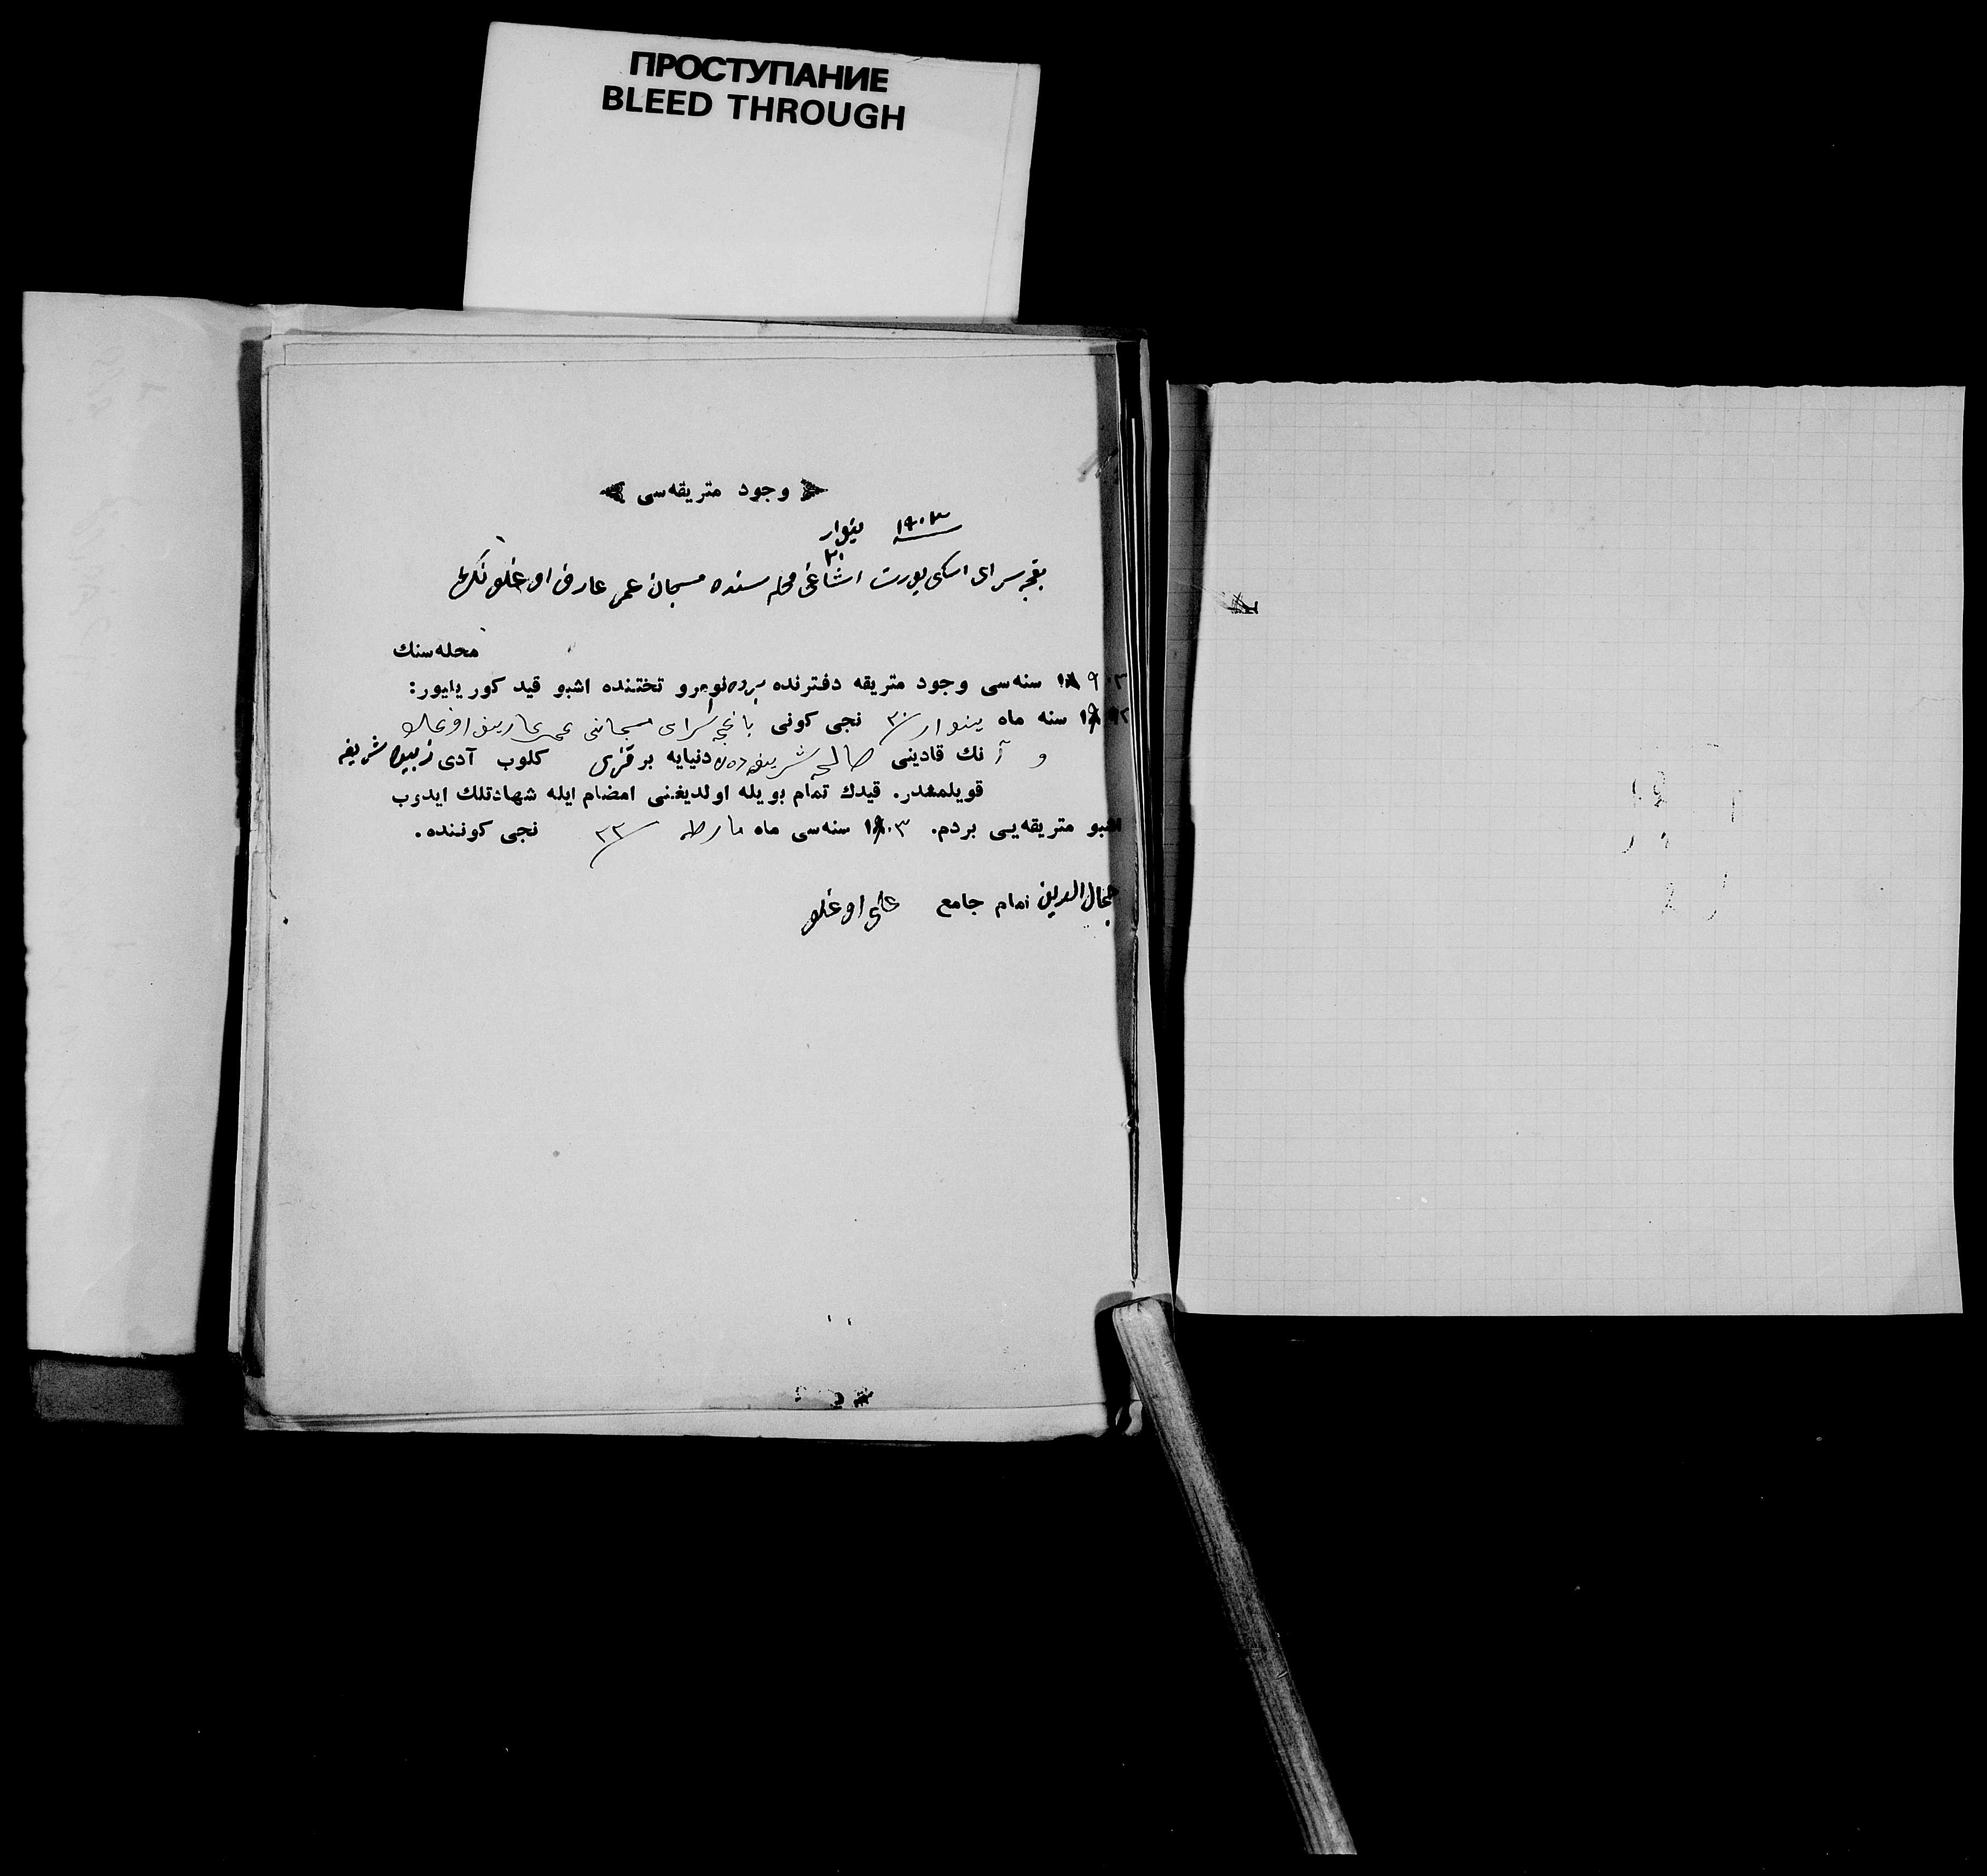 ПРОСТУПАНИЕ
BLEED THROUGH
وجود متریقه‌سی
سنه ١٩٠٣ ینوار
٣٠
بقچه سرای اسکی یورت اشاغی محله سنده مسجان عمر عارف اوغلونك
محله‌سنك
١٩٠٣ سنه‌سی وجود متریقه دفترنده نومرو تختنده اشبو قید کوریلیور:
سنه ماه ینوار ٣٠ نجی کونی باغچه سرای مسجانی عمر عارف اوغلو
و آنك قادینی صالحه شریفه دن دنیایه بر قزی کلوب آدی زبیده شریفه
قویلمشدر. قیدك تمام بویله اولدیغنی امضام ایله شهادتلك ایدوب
اشبو متریقه‌یی بردم. ١٩٠٣ سنه‌سی ماه مارط ٢٣ نجی کوننده.
جمال الدین امام جامع علی اوغلو